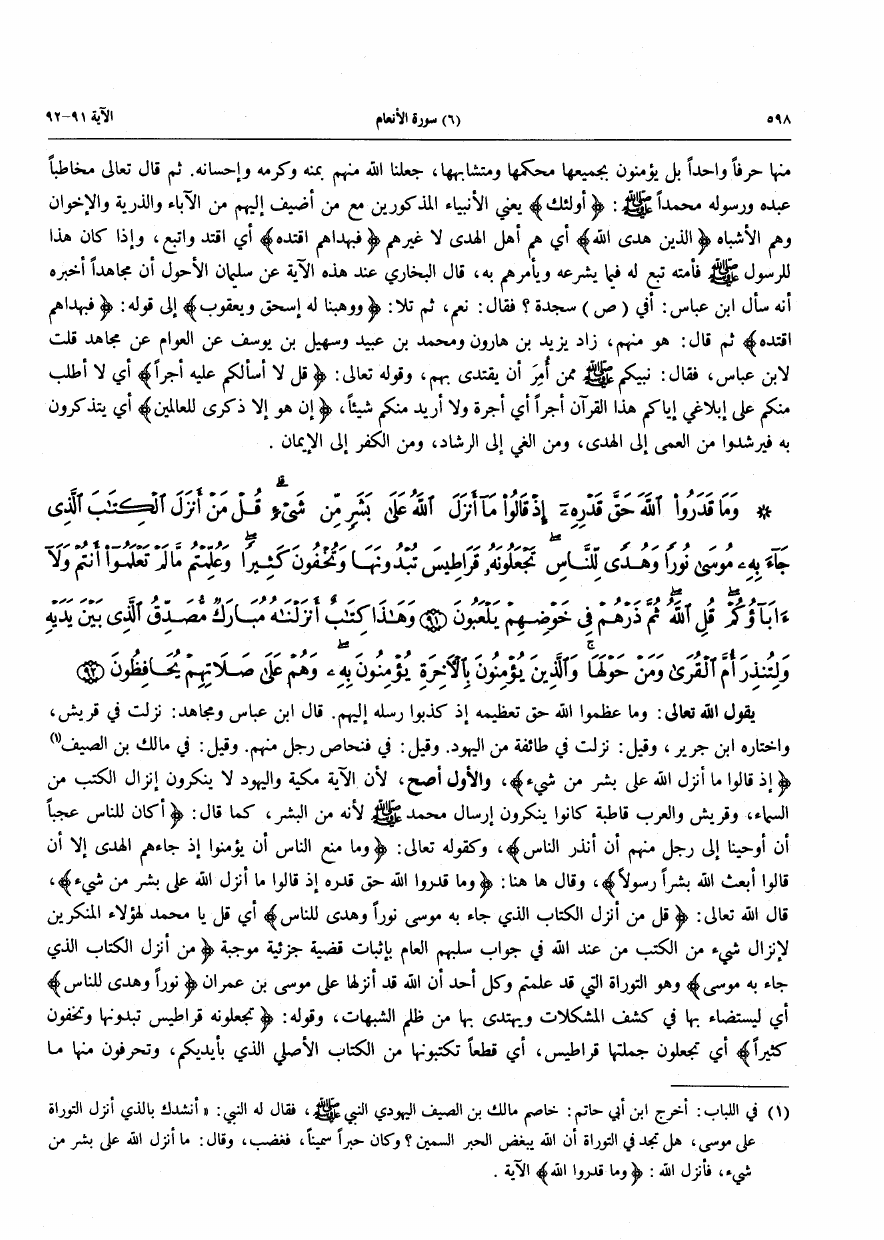 ٥٩٨ (٦) سورة الأنعام الآية ٩١-٩٢
منها حرفاً واحداً بل يؤمنون بجميعها محكمها ومتشابهها، جعلنا الله منهم بمنه وكرمه وإحسانه. ثم قال تعالى مخاطباً
عبده ورسوله محمداً ﷺ: ﴿أولئك﴾ يعني الأنبياء المذكورين مع من أضيف إليهم من الآباء والذرية والإخوان
وهم الأشباه ﴿الذين هدى الله﴾ أي هم أهل الهدى لا غيرهم ﴿فبهداهم اقتده﴾ أي اقتد واتبع، وإذا كان هذا
للرسول ﷺ فأمته تبع له فيما يشرعه ويأمرهم به، قال البخاري عند هذه الآية عن سليمان الأحول أن مجاهداً أخبره
أنه سأل ابن عباس: أفي (ص) سجدة؟ فقال: نعم، ثم تلا: ﴿ووهبنا له إسحق ويعقوب﴾ إلى قوله: ﴿فبهداهم
اقتده﴾ ثم قال: هو منهم، زاد يزيد بن هارون ومحمد بن عبيد وسهيل بن يوسف عن العوام عن مجاهد قلت
لابن عباس، فقال: نبيكم ﷺ ممن أُمِرَ أن يقتدى بهم، وقوله تعالى: ﴿قل لا أسألكم عليه أجراً﴾ أي لا أطلب
منكم على إبلاغي إياكم هذا القرآن أجراً أي أجرة ولا أريد منكم شيئاً، ﴿إن هو إلا ذكرى للعالمين﴾ أي يتذكرون
به فيرشدوا من العمى إلى الهدى، ومن الغي إلى الرشاد، ومن الكفر إلى الإيمان .
* وَمَا قَدَرُوا۟ ٱللَّهَ حَقَّ قَدْرِهِۦٓ إِذْ قَالُوا۟ مَآ أَنزَلَ ٱللَّهُ عَلَىٰ بَشَرٍ مِّن شَىْءٍ ۗ قُلْ مَنْ أَنزَلَ ٱلْكِتَٰبَ ٱلَّذِى
جَآءَ بِهِۦ مُوسَىٰ نُورًا وَهُدًى لِّلنَّاسِ ۖ تَجْعَلُونَهُۥ قَرَاطِيسَ تُبْدُونَهَا وَتُخْفُونَ كَثِيرًا ۖ وَعُلِّمْتُم مَّا لَمْ تَعْلَمُوٓا۟ أَنتُمْ وَلَآ
ءَابَآؤُكُمْ ۖ قُلِ ٱللَّهُ ۖ ثُمَّ ذَرْهُمْ فِى خَوْضِهِمْ يَلْعَبُونَ ﴿٩١﴾ وَهَٰذَا كِتَٰبٌ أَنزَلْنَٰهُ مُبَارَكٌ مُّصَدِّقُ ٱلَّذِى بَيْنَ يَدَيْهِ
وَلِتُنذِرَ أُمَّ ٱلْقُرَىٰ وَمَنْ حَوْلَهَا ۚ وَٱلَّذِينَ يُؤْمِنُونَ بِٱلْءَاخِرَةِ يُؤْمِنُونَ بِهِۦ ۖ وَهُمْ عَلَىٰ صَلَاتِهِمْ يُحَافِظُونَ ﴿٩٢﴾
يقول الله تعالى: وما عظموا الله حق تعظيمه إذ كذبوا رسله إليهم. قال ابن عباس ومجاهد: نزلت في قريش،
واختاره ابن جرير، وقيل: نزلت في طائفة من اليهود. وقيل: في فنحاص رجل منهم. وقيل: في مالك بن الصيف(١)
﴿إذ قالوا ما أنزل الله على بشر من شيء﴾، والأول أصح، لأن الآية مكية واليهود لا ينكرون إنزال الكتب من
السماء، وقريش والعرب قاطبة كانوا ينكرون إرسال محمد ﷺ لأنه من البشر، كما قال: ﴿أكان للناس عجباً
أن أوحينا إلى رجل منهم أن أنذر الناس﴾، وكقوله تعالى: ﴿وما منع الناس أن يؤمنوا إذ جاءهم الهدى إلا أن
قالوا أبعث الله بشراً رسولاً﴾، وقال ها هنا: ﴿وما قدروا الله حق قدره إذ قالوا ما أنزل الله على بشر من شيء﴾،
قال الله تعالى: ﴿قل من أنزل الكتاب الذي جاء به موسى نوراً وهدى للناس﴾ أي قل يا محمد لهؤلاء المنكرين
لإنزال شيء من الكتب من عند الله في جواب سلبهم العام بإثبات قضية جزئية موجبة ﴿من أنزل الكتاب الذي
جاء به موسى﴾ وهو التوراة التي قد علمتم وكل أحد أن الله قد أنزلها على موسى بن عمران ﴿نوراً وهدى للناس﴾
أي ليستضاء بها في كشف المشكلات ويهتدى بها من ظلم الشبهات، وقوله: ﴿تجعلونه قراطيس تبدونها وتخفون
كثيراً﴾ أي تجعلون جملتها قراطيس، أي قطعاً تكتبونها من الكتاب الأصلي الذي بأيديكم، وتحرفون منها ما
(١) في اللباب: أخرج ابن أبي حاتم: خاصم مالك بن الصيف اليهودي النبي ﷺ، فقال له النبي: « أنشدك بالذي أنزل التوراة
على موسى، هل تجد في التوراة أن الله يبغض الحبر السمين؟ وكان حبراً سميناً، فغضب، وقال: ما أنزل الله على بشر من
شيء، فأنزل الله: ﴿وما قدروا الله﴾ الآية .